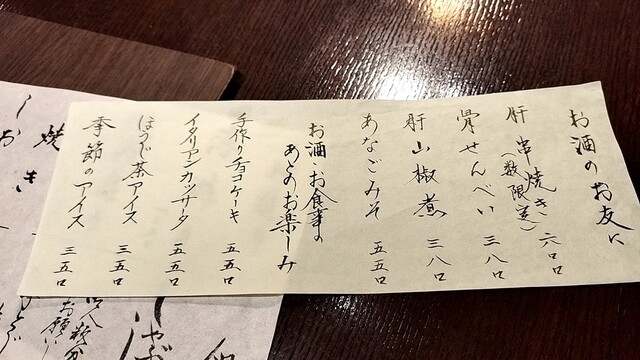 お酒のお友に
肝串焼き(数限定) 六〇〇
骨せんべい 三八〇
肝山椒煮 三八〇
あなごみそ 五五〇
お酒・お食事の
あとのお楽しみ
手作りチョコケーキ 五五〇
イタリアンカッサータ 五五〇
ほうじ茶アイス 三五〇
季節のアイス 三五〇
焼き
しお
お願い